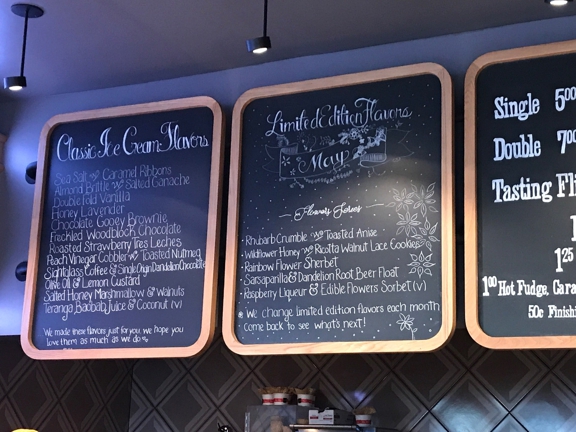 Classic Ice Cream Flavors
Sea Salt w/ Caramel Ribbons
Almond Brittle w/ Salted Ganache
Double Fold Vanilla
Honey Lavender
Chocolate Gooey Brownie
Freckled Woodblock Chocolate
Roasted Strawberry Tres Leches
Peach Vinegar Cobbler w/ Toasted Nutmeg
Sightglass Coffee & Single Origin Dandelion Chocolate
Olive Oil & Lemon Custard
Salted Honey Marshmallow & Walnuts
Teranga Baobab Juice & Coconut (v)
We made these flavors just for you. We hope you
love them as much as we do.
Limited Edition Flavors
May
Flowers Series
Rhubarb Crumble w/ Toasted Anise
Wildflower Honey w/ Ricotta Walnut Lace Cookies
Rainbow Flower Sherbet
Sarsapanilla & Dandelion Root Beer Float
Raspberry Liqueur & Edible Flowers Sorbet (v)
* We change limited edition flavors each month
come back to see what's next!
Single 500
Double 700
Tasting Fli
1
1.25
1.00 Hot Fudge, Cara
50¢ Finishi